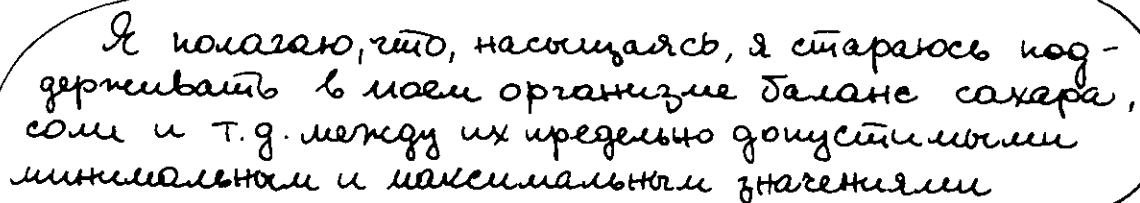 Я полагаю, что, насыщаясь, я стараюсь под-
держивать в моем организме баланс сахара,
соли и т.д. между их предельно допустимыми
минимальным и максимальным значениями